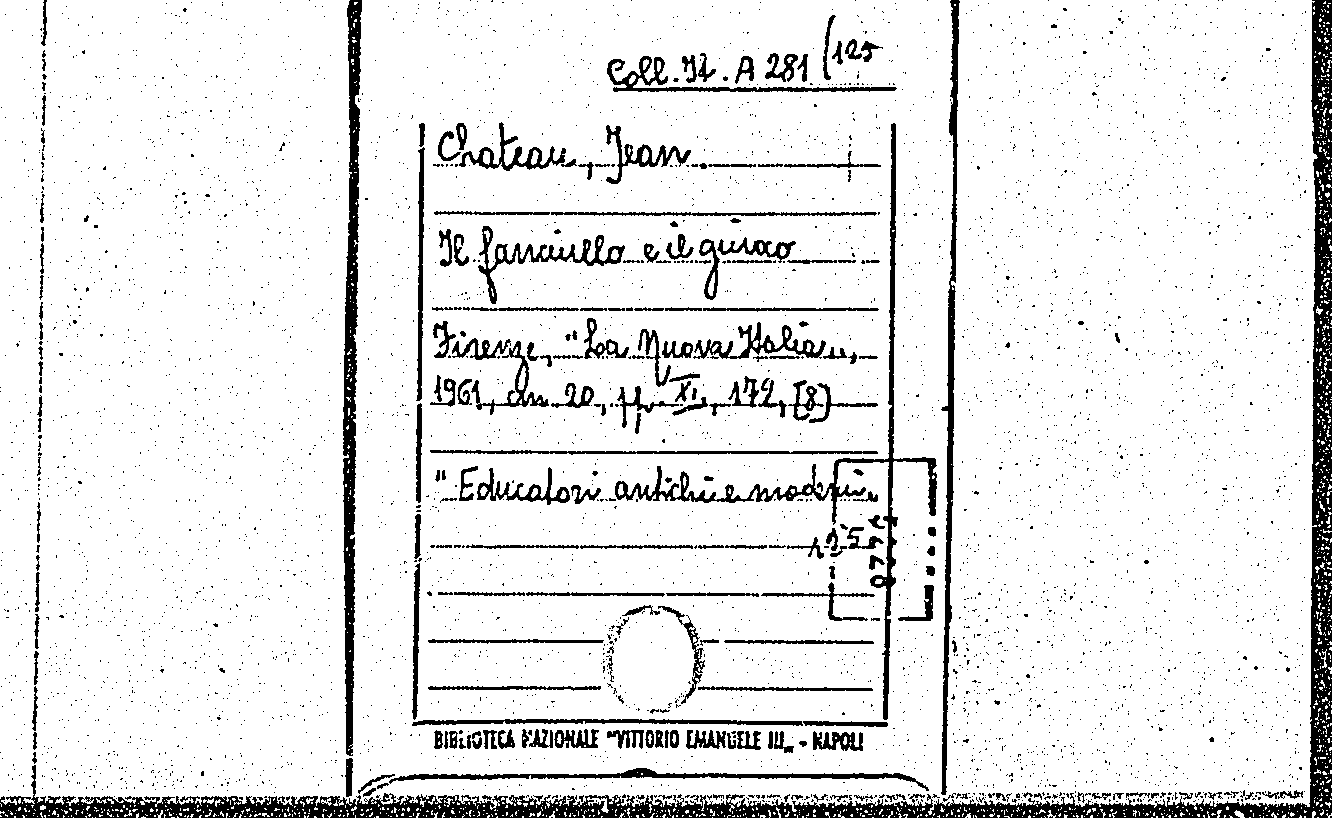 Coll. It. A 281 (125
Chateau, Jean.
Il fanciullo e il giuoco
Firenze, "La Nuova Italia",
1961, cm 20, pp. XI, 172, [8]
"Educatori antichi e moderni"
125
BIBLIOTECA NAZIONALE "VITTORIO EMANUELE III" - NAPOLI